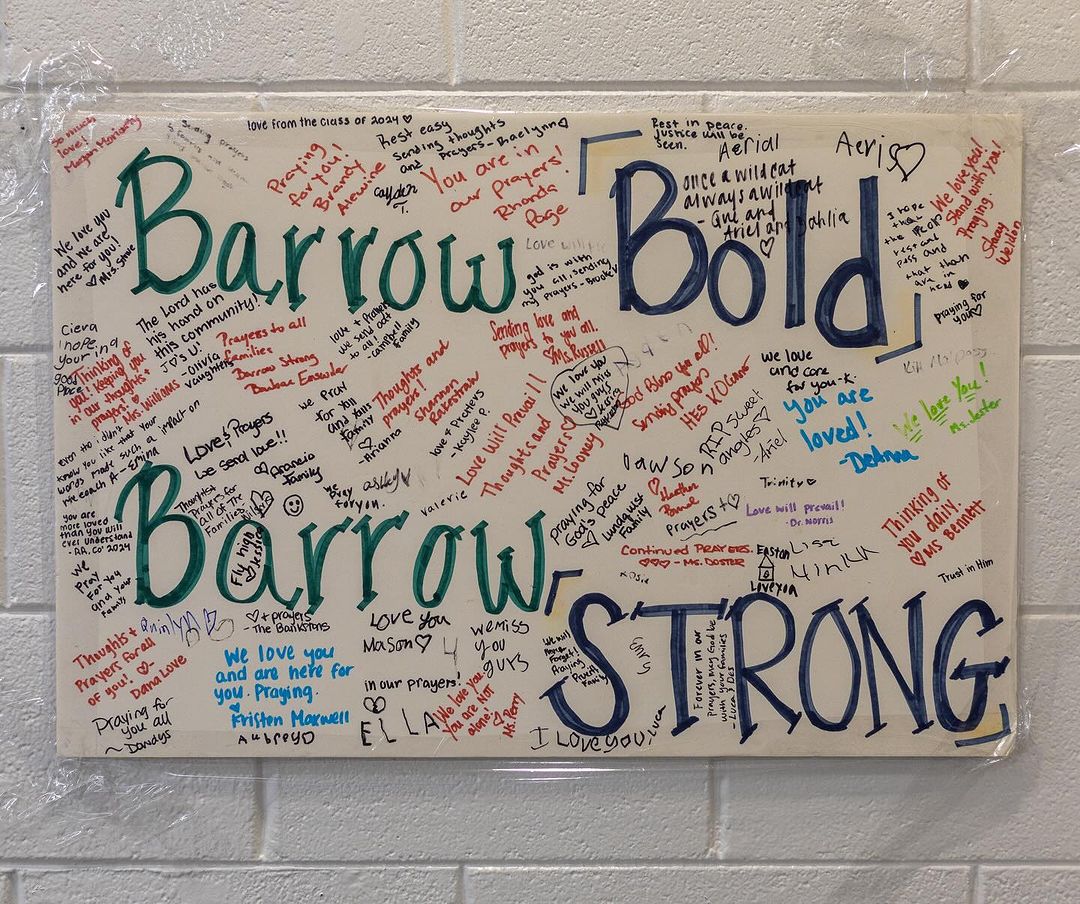 So much
love!
love from the Class of 2024 ♡
Rest easy
sending thoughts
and Prayers - Braelynn ♡
Praying
for you!
Brandy
Alewine
You are in
our prayers!
Rhonda
Page
Rest in peace.
Justice will be
seen.
Aerial
Aeris
once a wildcat
always a wildcat
- Que and
Ariel and Dahlia
We love you!
Stand with you!
Praying
Stacy
Weldon
Barrow
Bold
We love you
and we are
here for you!
The Lord has
his hand on
this community!
JD's U!
- Olivia
Vaughters
Love will
god is with
you all. sending
Prayers - Brooke
I hope
that
the
pass and
that than
are in
praying for
you
Cieva
I hope
your ing
Thinking of
yall! Keeping you
in our thoughts +
prayers! ♡
Ms. Williams
Prayers to all
families
Barrow Strong
love + Prayers
we send out
to all! -
campbell
Family
Sending love and
prayers to you all.
♡ Ms. Russell
We love you
We will miss
you guys
God Bless you all!
Sending prayers
HES KDGarten
we love
and care
for you-K.
you are
loved!
-DeAnna
We love You!
Ms. Jester
Thoughts and
prayers!
Sherman
we Pray
for Yall
and Yalls
Family
♡
-Arianna
love & Prayers
-Kaylee P.
Love Will Prevail
Thoughts and
Prayers ♡
Ms. Looney
RIP Sweet
angles ♡
-Ariel
even tho i didn't
know you like that your
words made such a impact on
me coach A - Emina
Love & Prayers
we send love!!
Family
Thoughts +
prayers for
all of The
Families
we pray
for you.
ashly
Valerie
Dawson
♡ Heather
Prayers + ♡
Trinity ♡
Love will prevail!
- Dr. Norris
Thinking of
you daily.
♡ MS Bennett
you are
more loved
than you will
ever understand
- AA, Co' 2024
Barrow
Fly high
Jessica
praying for
God's peace
♡ Lundquist
Family
Continued PRAYERS.
♡♡♡ - MS. DOSTER
Easton
Love you
Trust in Him
we
Pray
For You
and Your
Family
STRONG
Quinlyn
♡ + prayers
- The Bankstons
LOVE you
Mason ♡
4
we miss
you
guys
We will
Never
Forget!
Praying
Family
Chris
Forever in our
prayers, may God be
with your families
- Luca & Des
Thoughts +
Prayers for all
of you! ♡
Dana Love
We love you
and are here for
you. Praying.
♥ Kristen Maxwell
in our prayers!
ELLA
We love you.
You are not
alone!
Ms. Perry
Praying for
you all
~ Dowdys
Aubrey ♡
I LOVE YOU, Luca